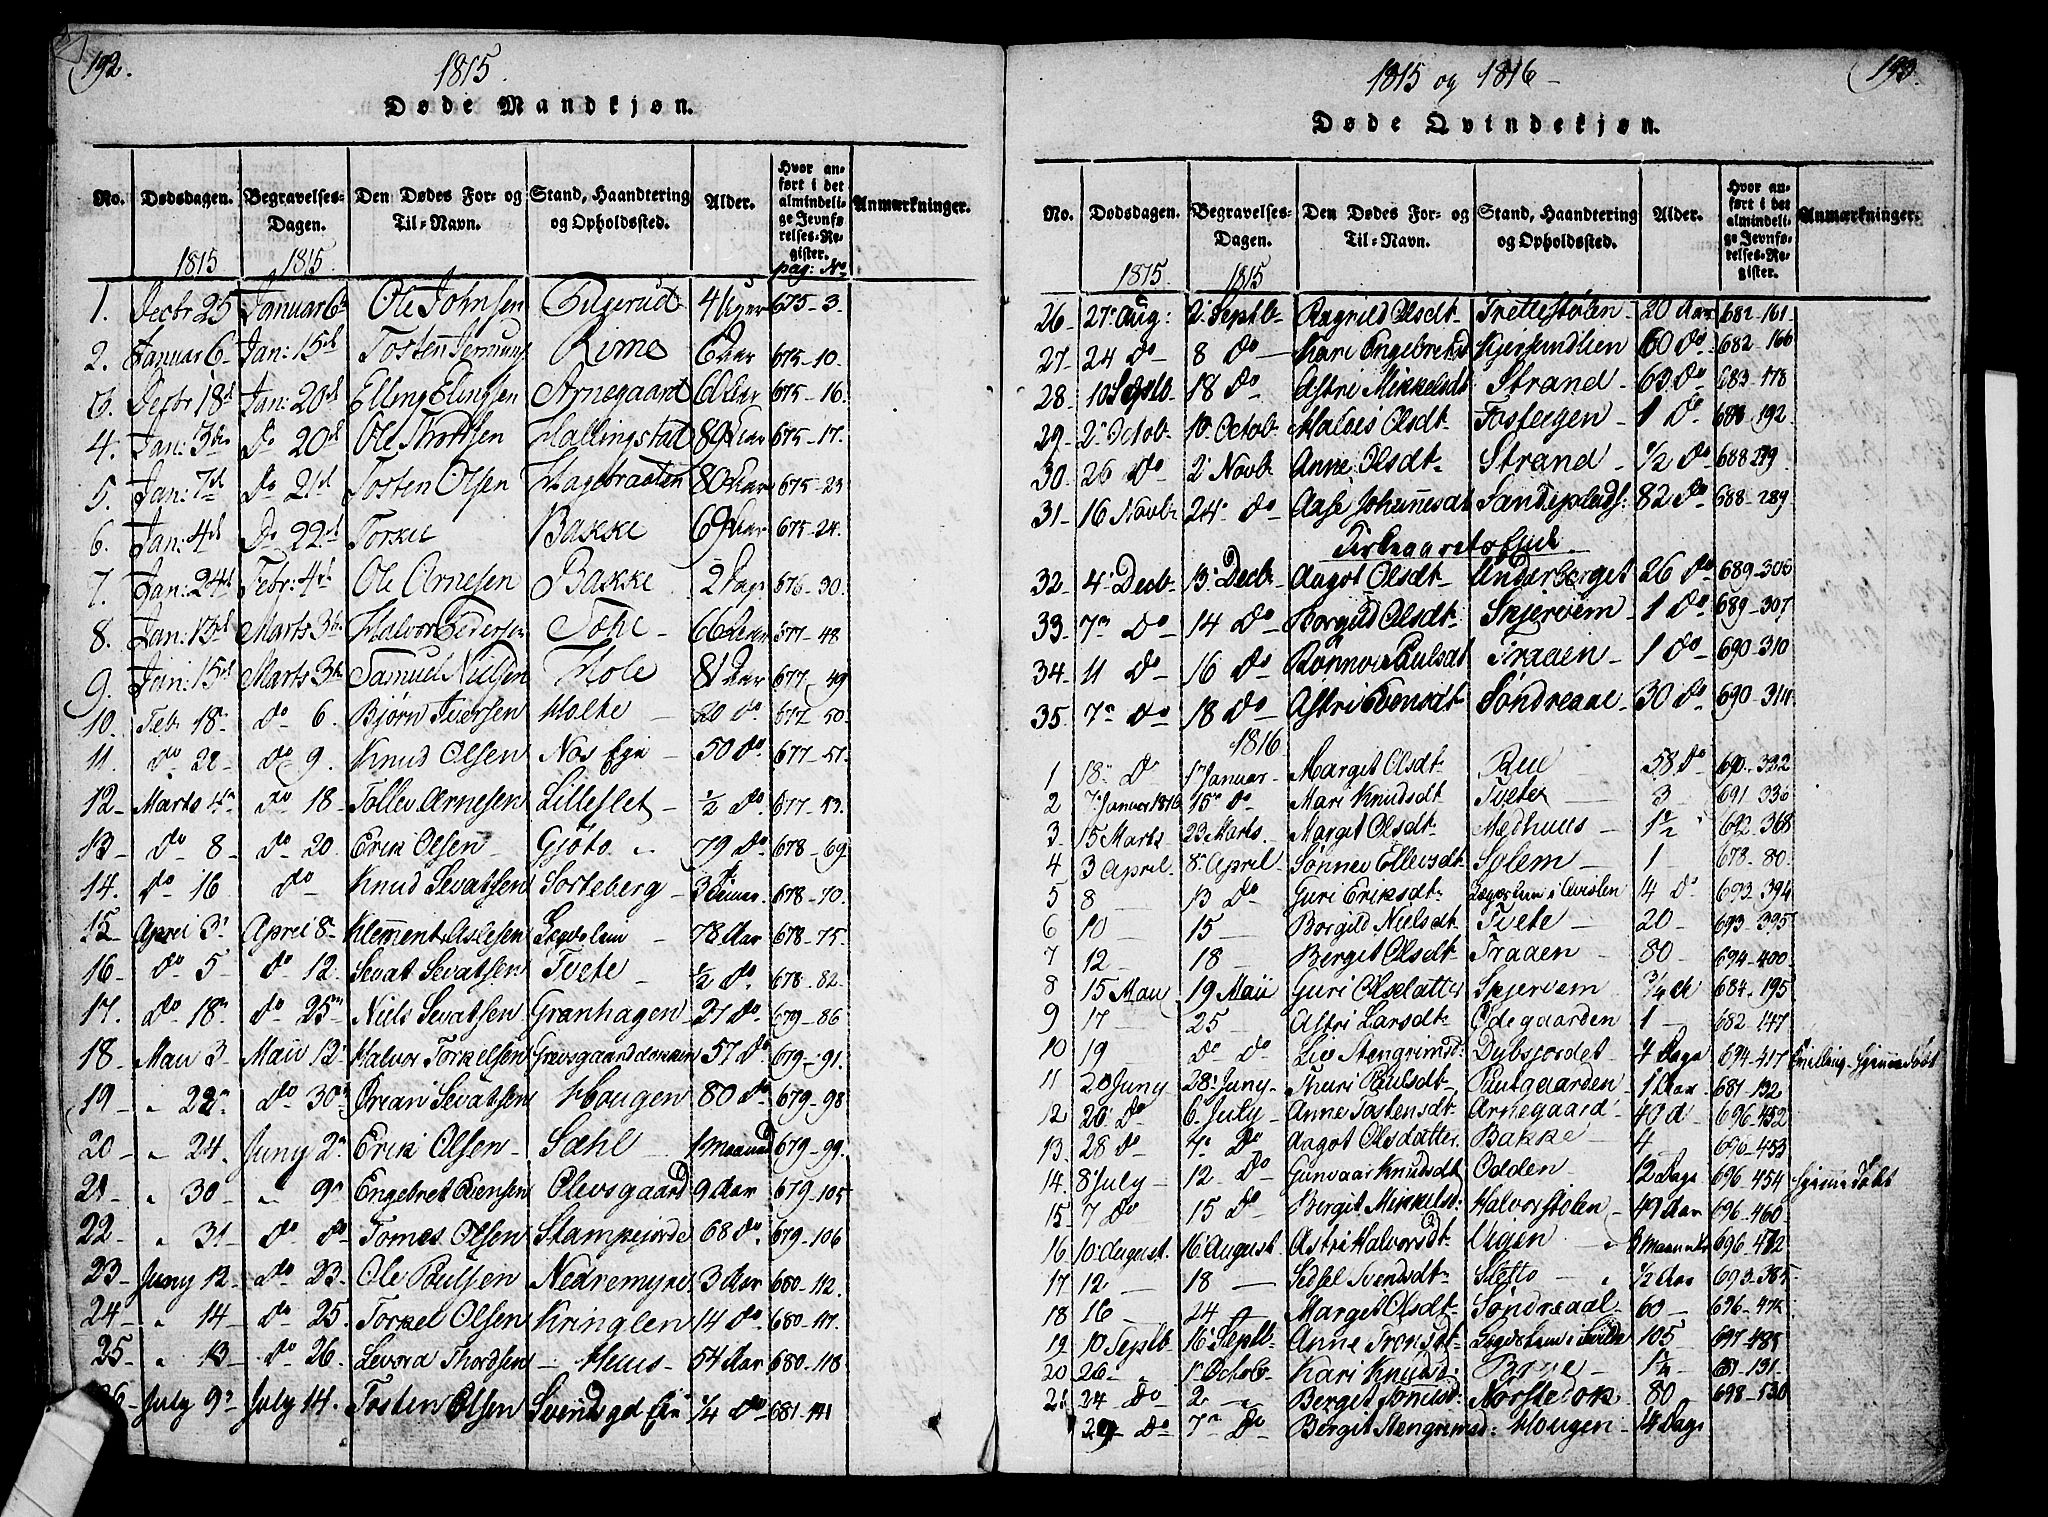 192.
1815.
Døde Mandkjøn.
No. Dødsdagen. Begravelses-Dagen. Den Dødes For- og Til-Navn. Stand, Haandtering og Opholdssted. Alder. Hvor anført i det almindelige Jevnførelses-Register. Anmærkninger.
1815 1815 pag: No
1. Decbr 25 Januar 6 Ole Johnsen 4 Uger 675-3.
2. Januar 6 Jan: 15d Tosten Rime 6 Aar 675-10.
3. Decbr 18d Jan: 20d Elling Elingsen Arnegaard 60 Aar 675-16.
4. Jan: 3die Do 20d Ole Thordsen Hallingstad 89 Aar 675-17.
5. Jan: 7d Do 21d Tosten Olsen Hagebraaten 80 Aar 675-23
6. Jan: 4d Do 22d Torkel Bakke 69 Aar 675-24.
7. Jan: 24d Febr: 4d Ole Arnesen Bakke 2 Dage 676-30.
8. Jan: 13d Marts 3die Halvor Pedersen 66 Aar 677-48
9. Jan: 15d Marts 3die Samuel Nielsen Hole 81 Aar 677-49
10. Febr 18 do 6. Bjørn Iversen Holte 80 do. 677-50.
11. do 22 do 9. Knud Olsen Næs Eje 50 do 677-51.
12 Marts 4 do 18 Tollev Arnesen Lilleflet 1/2 do 677-53.
13 do 8 do 20 Erik Olsen Gjøto 79 do 678-69
14. do 16 do Knud Sevatsen Sorteberg 678-70.
15 April 3 April 8 Klement Aslesen 78 Aar 678-75.
16 do 5 do 12. Sevat Sevatsen Tvete 1/2 do. 678-82
17. do 18 do 25 Niels Sevatsen Granhagen 27 do. 679-86
18 Maii 3 Maii 12 Halvor Torkelsen Grevsgaardsløkken 57 do 679-91.
19 " 22 do 30 Ørian Sevatsen Hougen 80 do 679-98
20 " 24. Juny 2 Erik Olsen Sæhl 1 Maaned 679-99.
21 " 30 " 9 Engebret Evensen Olevsgaard 9 Aar 679-105
22 " 31 do do Tomes Olsen Stampejorde 68 do 679-106
23 Juny 12 do 23. Ole Paulsen Nedremyre 3 Aar 680-112.
24 " 14 do 25. Torkel Olsen Kringlen 14 do 680-117.
25 " 13 do 26. Levord Thordsen Huus 54 Aar 680-118
26 July 9 July 14. Tosten Olsen 1/4 do 681-141
193.
1815 og 1816
Døde Qvindekjøn.
No. Dødsdagen. Begravelses-Dagen. Den Dødes For- og Til-Navn. Stand, Haandtering og Opholdssted. Alder. Hvor anført i det almindelige Jevnførelses-Register. Anmærkninger.
1815 1815
26 27 Aug: 2 Septb Ragnild Olsdt Trettestølen 20 Aar 682-161
27 24 do 8 do Kari Engebretsd Kjersundlien 60 do 682-166
28 10 Septb 18 do Astri Mikkelsdt Strand 63 do 683-178
29 2 Octob 10 Octob Maldis Olsdt 1 do 683-192
30 26 do 2 Novb Anne Olsdt Strand 1/2 do 688-279
31 16 Novb 24 do Aase Johannesdt 82 do 688-289
Kirkeaarets Ende
32 4 Decb 13 Decb Aagot Olsdt Underberget 26 do 689-306
33 7 do 14 do Borgild Olsdt Skjervem 1 do 689-307
34 11 do 16 do Rønnov Paulsdt Traaen 1 do 690-310
35 7 do 18 do Astri Evensdt Søndreaal 30 do 690-314
1816
1 18 do 1 Januar Margit Olsdt Rue 58 do 690-332
2 7 Januar 1816 15 do Mari Knudsdt Tveter 3 691-336
3 15 Marts 23 Marts Margit Olsdt Mædhuus 1 1/2 692-368
4 3 April 8 April Sønnev Ellevsdt Solem 1 678-80
5 8 13 do Guri Eriksdt 4 do 693-394
6 10 15 Borgild Nielsdt Tvete 20 693-395
7 12 18 Bergit Olsdt Traaen 80 694-400
8 15 Maii 19 Maii Guri Olsdatter Skjervem 3/4 684-195
9 17 25 Astri Larsdt Ødegaarden 1 682-147
10 19 do do Liv Stengrimsd: Dybsjordet 4 Dage 694-417 Tvilling hjemmedøbt
11 20 Juny 28 Juny Thuri Paulsdt Paulgaarden 1 Aar 681-132
12 20 do 6 July Anne Tostensdt Arnegaard 40 d 696-452
13. 28 do 4 do Aagot Olsdatter Bakke 4 696-453
14. 8 July 12 do Gunvaar Knudsdt Odden 12 Dage 696-454 hjemmedøbt
15 7 do 15 do Bergit Mikkelsd: Halvorstølen 49 Aar 696-460
16 10 August. 16 August. Astri Halvorsdt Vigen 696-472
17 12 18 Sidsel Svendsdt Sletto 1/2 Aar 693-385
18 16 24 Margit Olsdt Søndreaal 60 696-472
19 10 Septb 16 Septb Anne Trondsdt 105 697-485
20 26 1 Octob Kari Knudsd: 1 1/2 681-131
21 24 do 2 Bergit Tomesd: 80 698-530
29 do 7 do Bergit Stengrimsd: Hougen 14 Dage